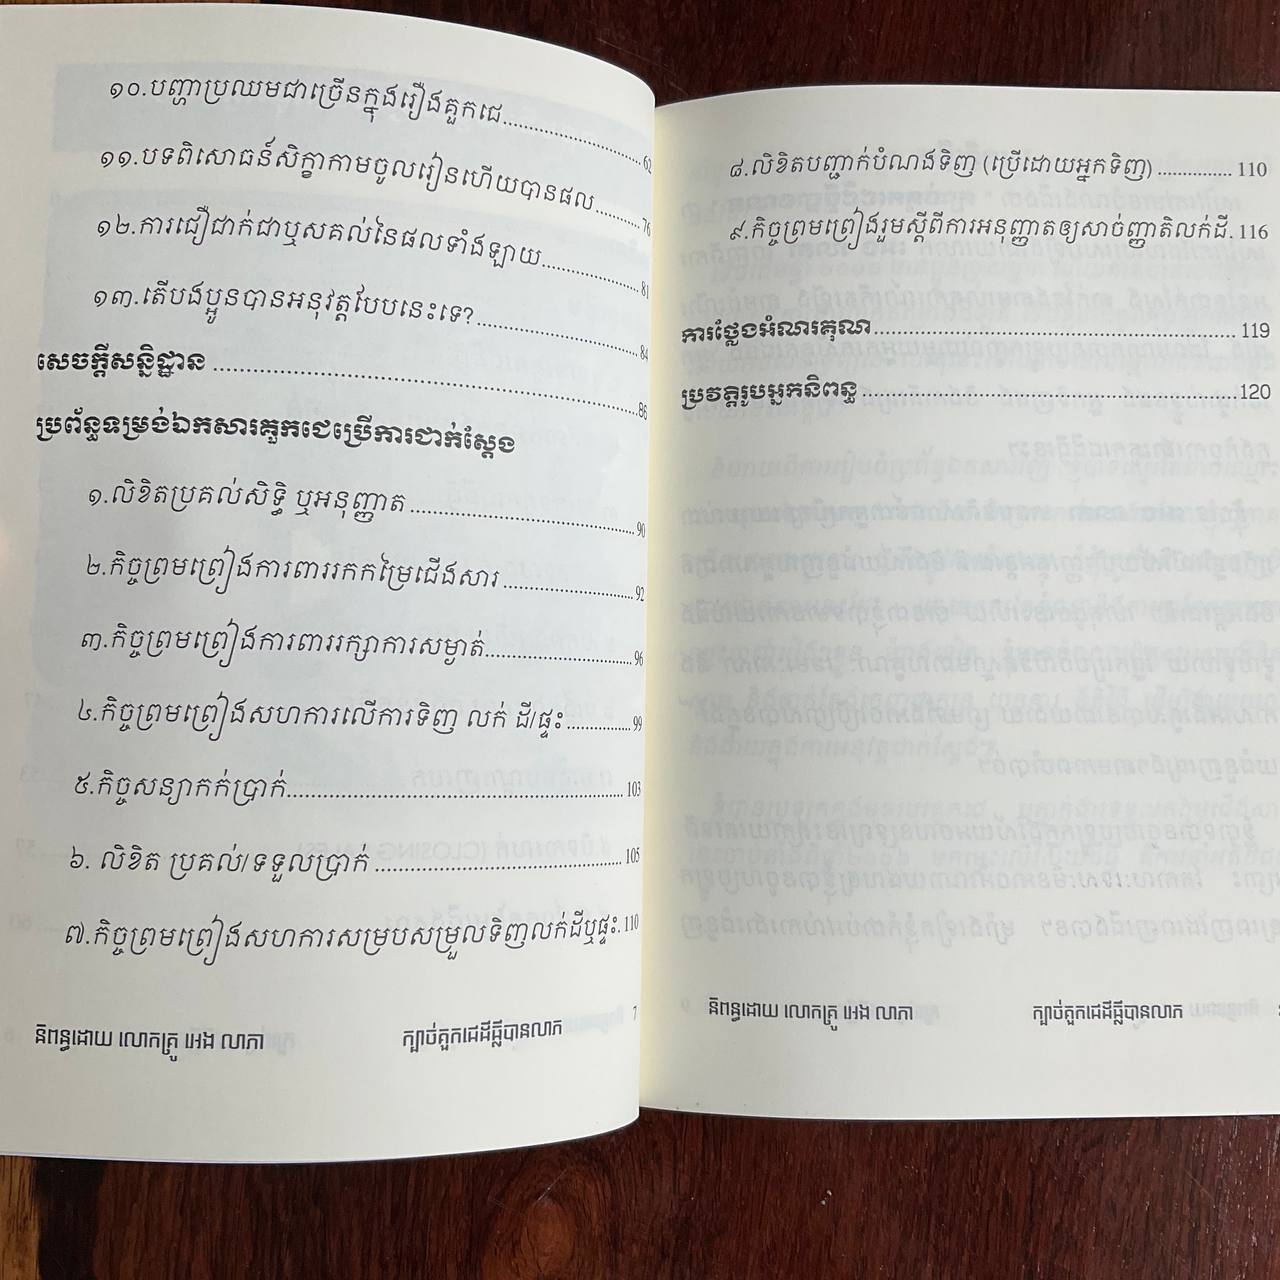 ១០.បញ្ហាប្រឈមជាច្រើនក្នុងរឿងគួកជេ.......................62
១១.បទពិសោធន៍សិក្ខាកាមចូលរៀនហើយបានផល..........76
១២.ការជឿជាក់ជាឬសគល់នៃផលទាំងឡាយ..................81
១៣.តើបងប្អូនបានអនុវត្តបែបនេះទេ?............................84
សេចក្តីសន្និដ្ឋាន ........................................................86
ប្រព័ន្ធទម្រង់ឯកសារគួកជេប្រើការជាក់ស្តែង
១.លិខិតប្រគល់សិទ្ធិ ឬអនុញ្ញាត ......................................90
២.កិច្ចព្រមព្រៀងការពាររកកម្រៃជើងសារ ......................92
៣.កិច្ចព្រមព្រៀងការពាររក្សាការសម្ងាត់.........................96
៤.កិច្ចព្រមព្រៀងសហការលើការទិញ លក់ ដី/ផ្ទះ ...........99
៥.កិច្ចសន្យាកក់ប្រាក់.....................................................103
៦. លិខិត ប្រគល់/ទទួលប្រាក់ ........................................105
៧.កិច្ចព្រមព្រៀងសហការសម្របសម្រួលទិញលក់ដីឬផ្ទះ.110
និពន្ធដោយ លោកគ្រូ អេង លាភា
ក្បាច់គួកជេដីធ្លីបានលាភ
7
៨.លិខិតបញ្ជាក់បំណងទិញ (ប្រើដោយអ្នកទិញ) .............. 110
៩.កិច្ចព្រមព្រៀងរួមស្តីពីការអនុញ្ញាតឲ្យសាច់ញាតិលក់ដី. 116
ការថ្លែងអំណរគុណ..................................................... 119
ប្រវត្តិរូបអ្នកនិពន្ធ ......................................................120
និពន្ធដោយ លោកគ្រូ អេង លាភា
ក្បាច់គួកជេដីធ្លីបានលាភ